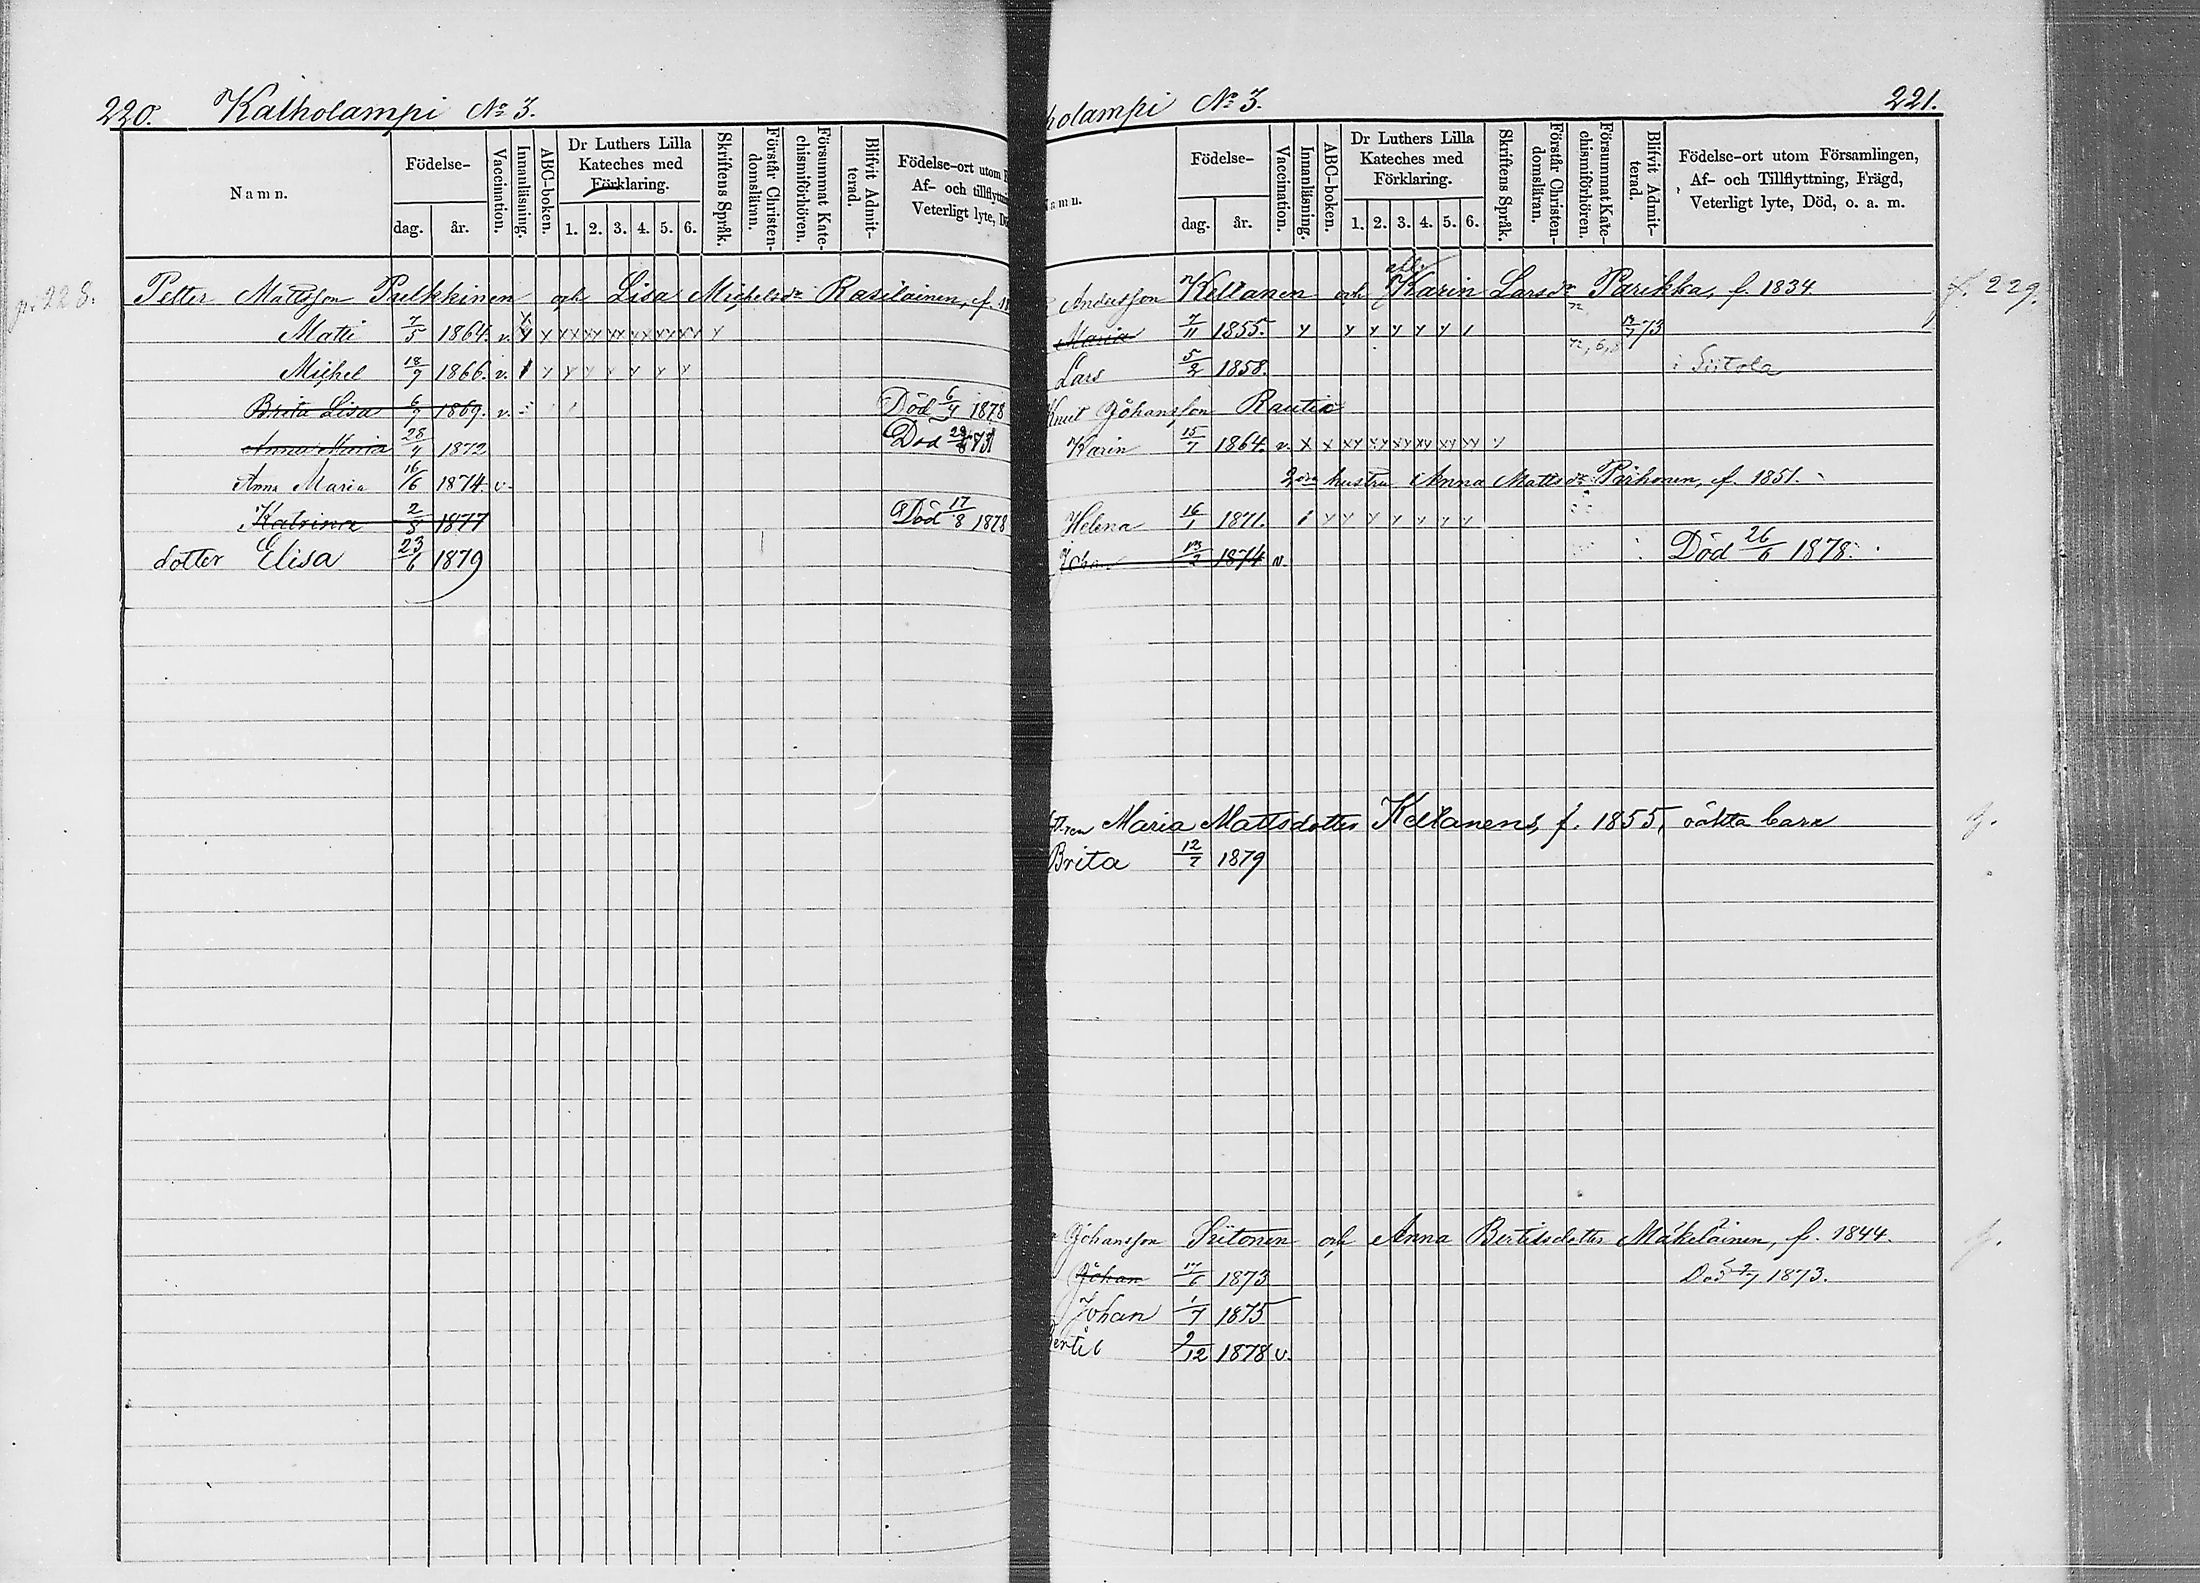 220. Kalholampi No 3.
Namn. Födelse- dag. år. Vaccination. Innanläsning. ABC-boken. Dr Luthers Lilla Kateches med Förklaring. 1. 2. 3. 4. 5. 6. Skriftens Språk. Förstår Christendomslärnn. Försummat Katechismiförhören. Blifvit Admitterad. Födelse-ort utom
Af- och tillflyttn
Veterligt lyte, Dö
p. 228. Petter Mattsson Pulkkinen och Lisa Michelsdr Rasilainen, f.
Matti 7/5 1864. v.
Michel 18/9 1866. v.
Brita Lisa 6/7 1869. v. Död 6/4 1878
Anna Maria 28/4 1872 Död 1873
Anna Maria 16/6 1874. v.
Katrina 2/5 1877 Död 17/8 1878
dotter Elisa 23/6 1879
holampi No 3. 221.
amn. Födelse- dag. år. Vaccination. Innanläsning. ABC-boken. Dr Luthers Lilla Kateches med Förklaring. 1. 2. 3. 4. 5. 6. Skriftens Språk. Förstår Christendomsläran. Försummat Katechismiförhören. Blifvit Admitterad. Födelse-ort utom Församlingen, Af- och Tillflyttning, Frägd, Veterligt lyte, Död, o. a. m.
Andersson Keltanen och Karin Larsdr Parikka, f. 1834. f. 229.
Maria 7/11 1855. 73
Lars 5/2 1858. i Siitola
Knut Johansson Rautio
Karin 15/7 1864. v.
2dra hustru Anna Mattsdr Pärhonen, f. 1851.
Helena 16/1 1871.
Johan 13/2 1874 v. Död 26/6 1878.
Maria Mattsdotter Keltanens, f. 1855, oäkta barn
Brita 12/7 1879
Johansson Siitonen och Anna Bertilsdotter Mäkeläinen, f. 1844.
Johan 17/6 1873 Död 2/7 1873.
Johan 1/7 1875
Bertil 9/12 1878 v.